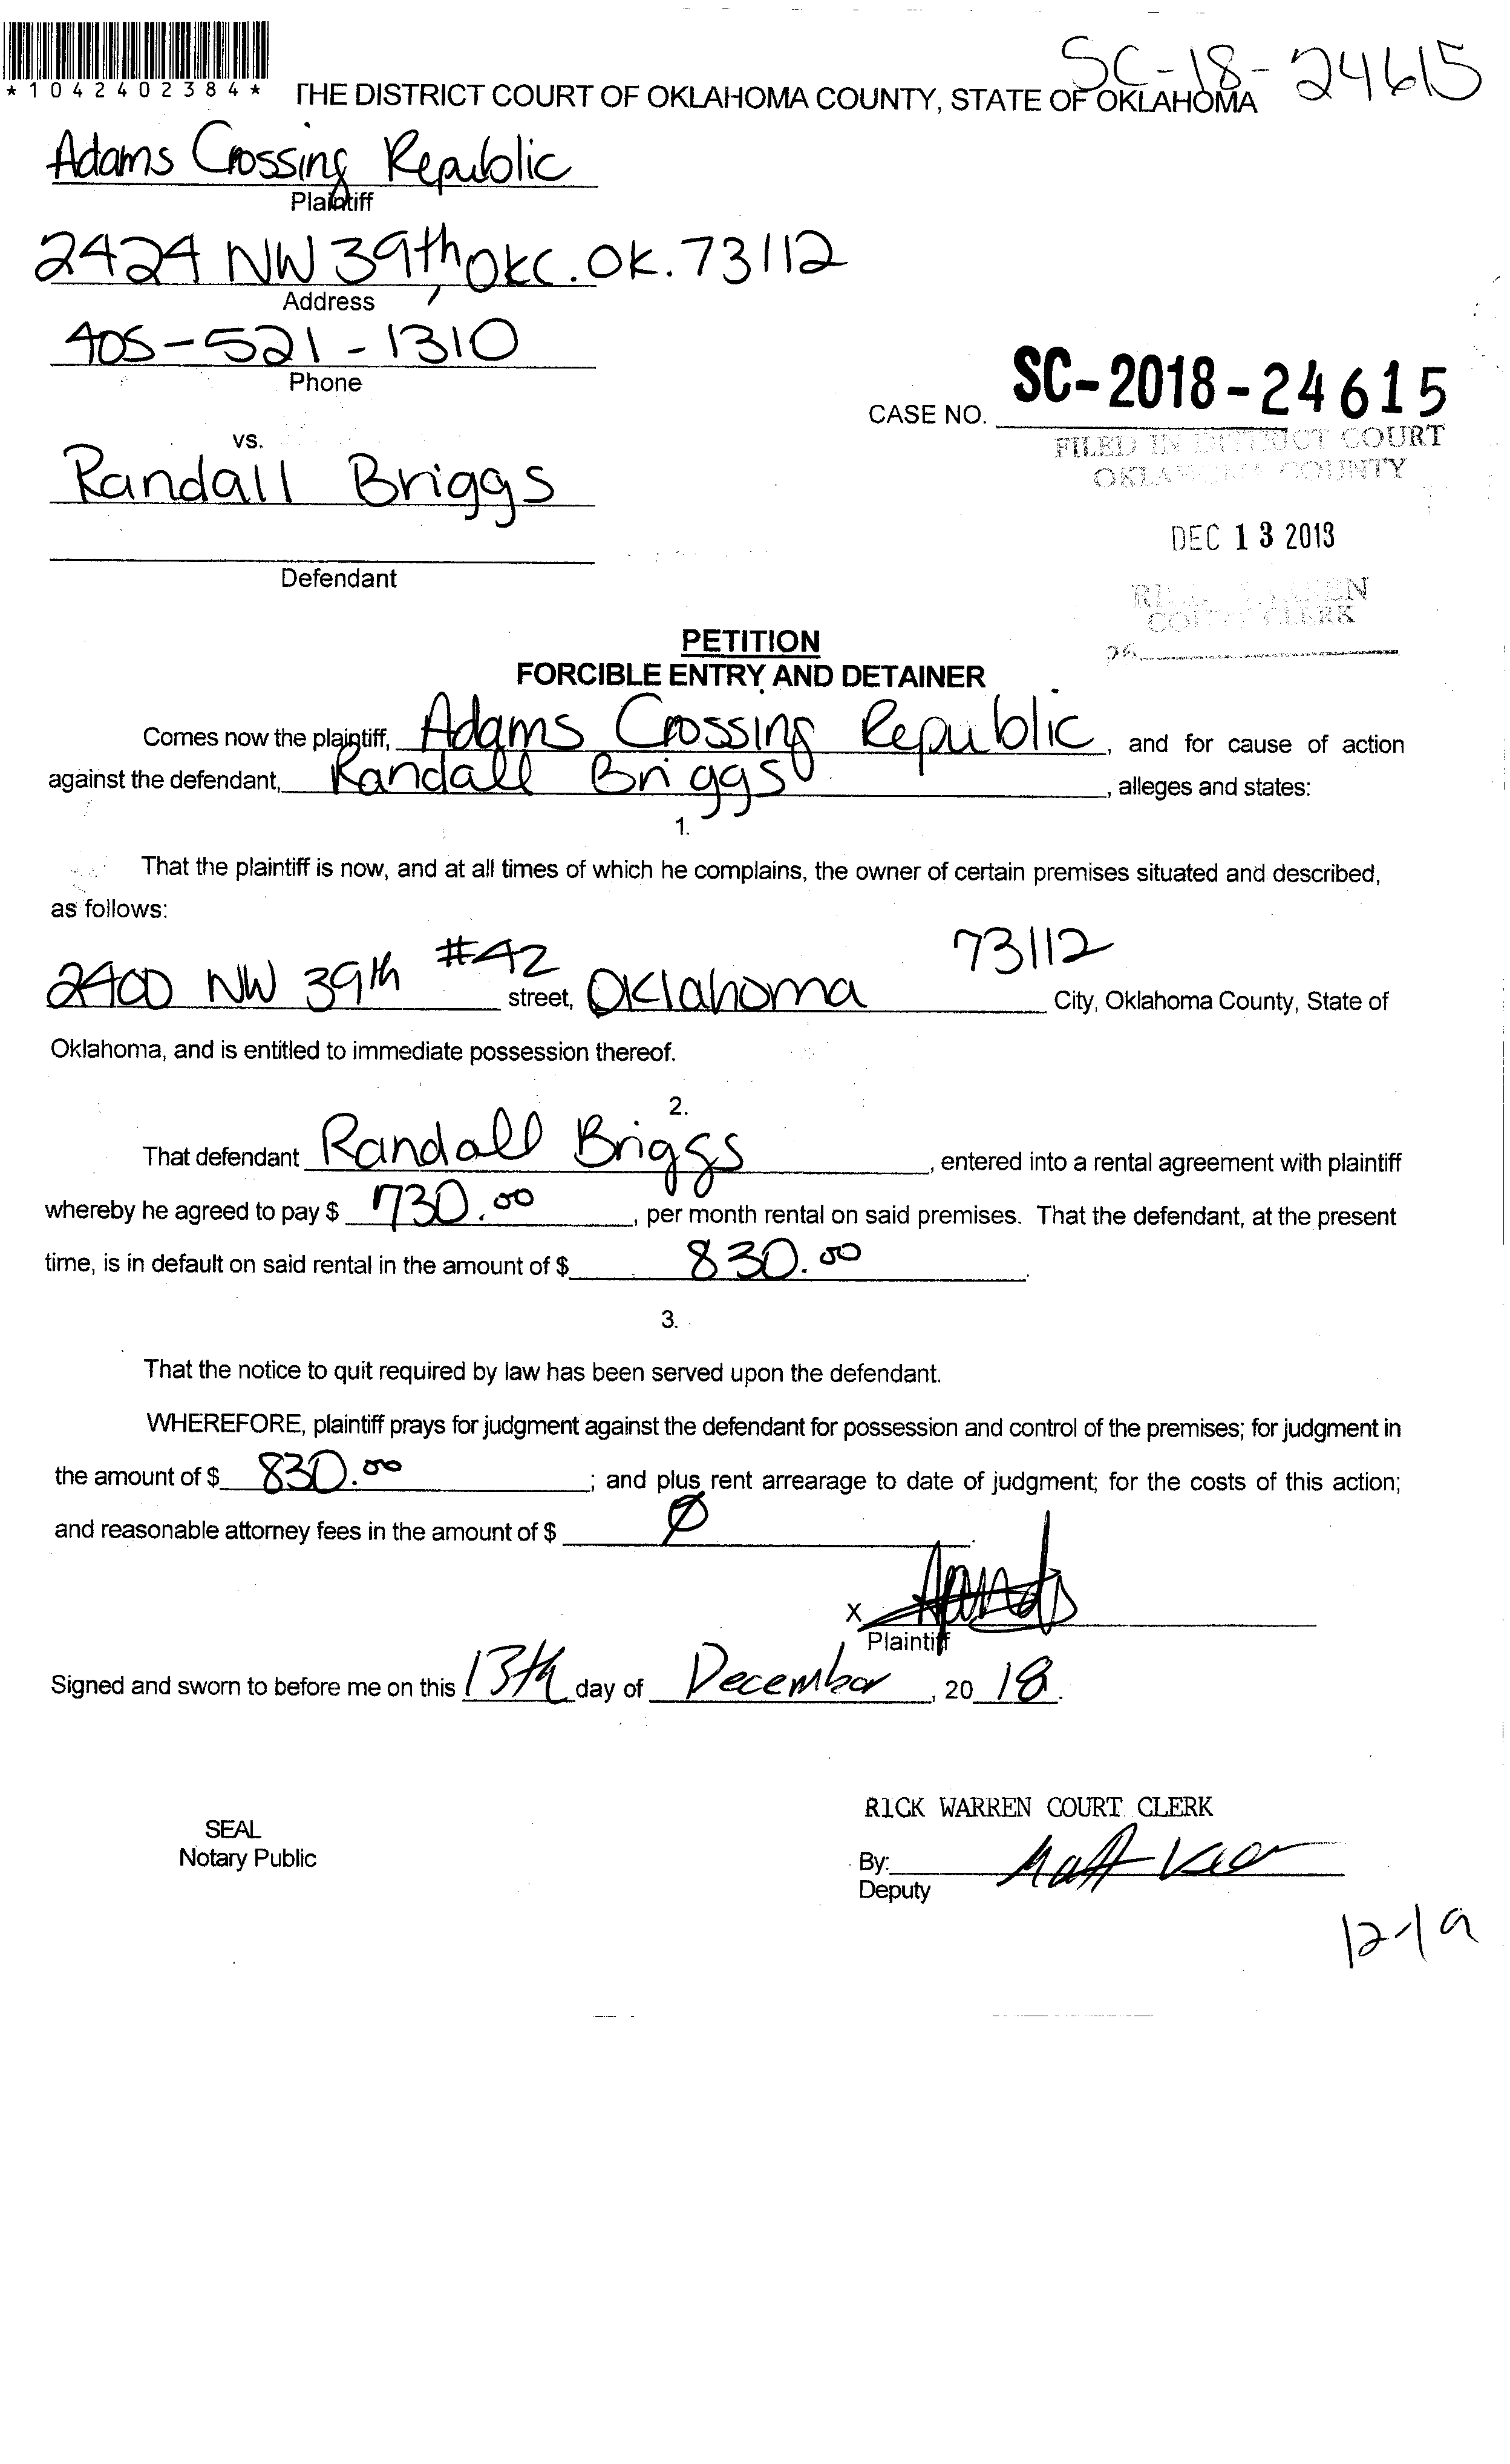 SC-18-24615
*1042402384*
THE DISTRICT COURT OF OKLAHOMA COUNTY, STATE OF OKLAHOMA
Adams Crossing Republic
Plaintiff
2424 NW 39th, OKC. OK. 73112
Address
405-521-1310
Phone
CASE NO. SC-2018-24615
FILED IN DISTRICT COURT
OKLAHOMA COUNTY
vs.
Randall Briggs
DEC 13 2018
Defendant
COURT CLERK
PETITION
FORCIBLE ENTRY AND DETAINER
Comes now the plaintiff, Adams Crossing Republic, and for cause of action
against the defendant, Randall Briggs, alleges and states:
1.
That the plaintiff is now, and at all times of which he complains, the owner of certain premises situated and described,
as follows:
2400 NW 39th #42 street, Oklahoma 73112 City, Oklahoma County, State of
Oklahoma, and is entitled to immediate possession thereof.
2.
That defendant Randall Briggs, entered into a rental agreement with plaintiff
whereby he agreed to pay $ 730.00, per month rental on said premises. That the defendant, at the present
time, is in default on said rental in the amount of $ 830.00.
3.
That the notice to quit required by law has been served upon the defendant.
WHEREFORE, plaintiff prays for judgment against the defendant for possession and control of the premises; for judgment in
the amount of $ 830.00; and plus rent arrearage to date of judgment; for the costs of this action;
and reasonable attorney fees in the amount of $ Ø.
X
Plaintiff
Signed and sworn to before me on this 13th day of December, 20 18.
RICK WARREN COURT CLERK
SEAL
Notary Public
By:
Deputy
12-19